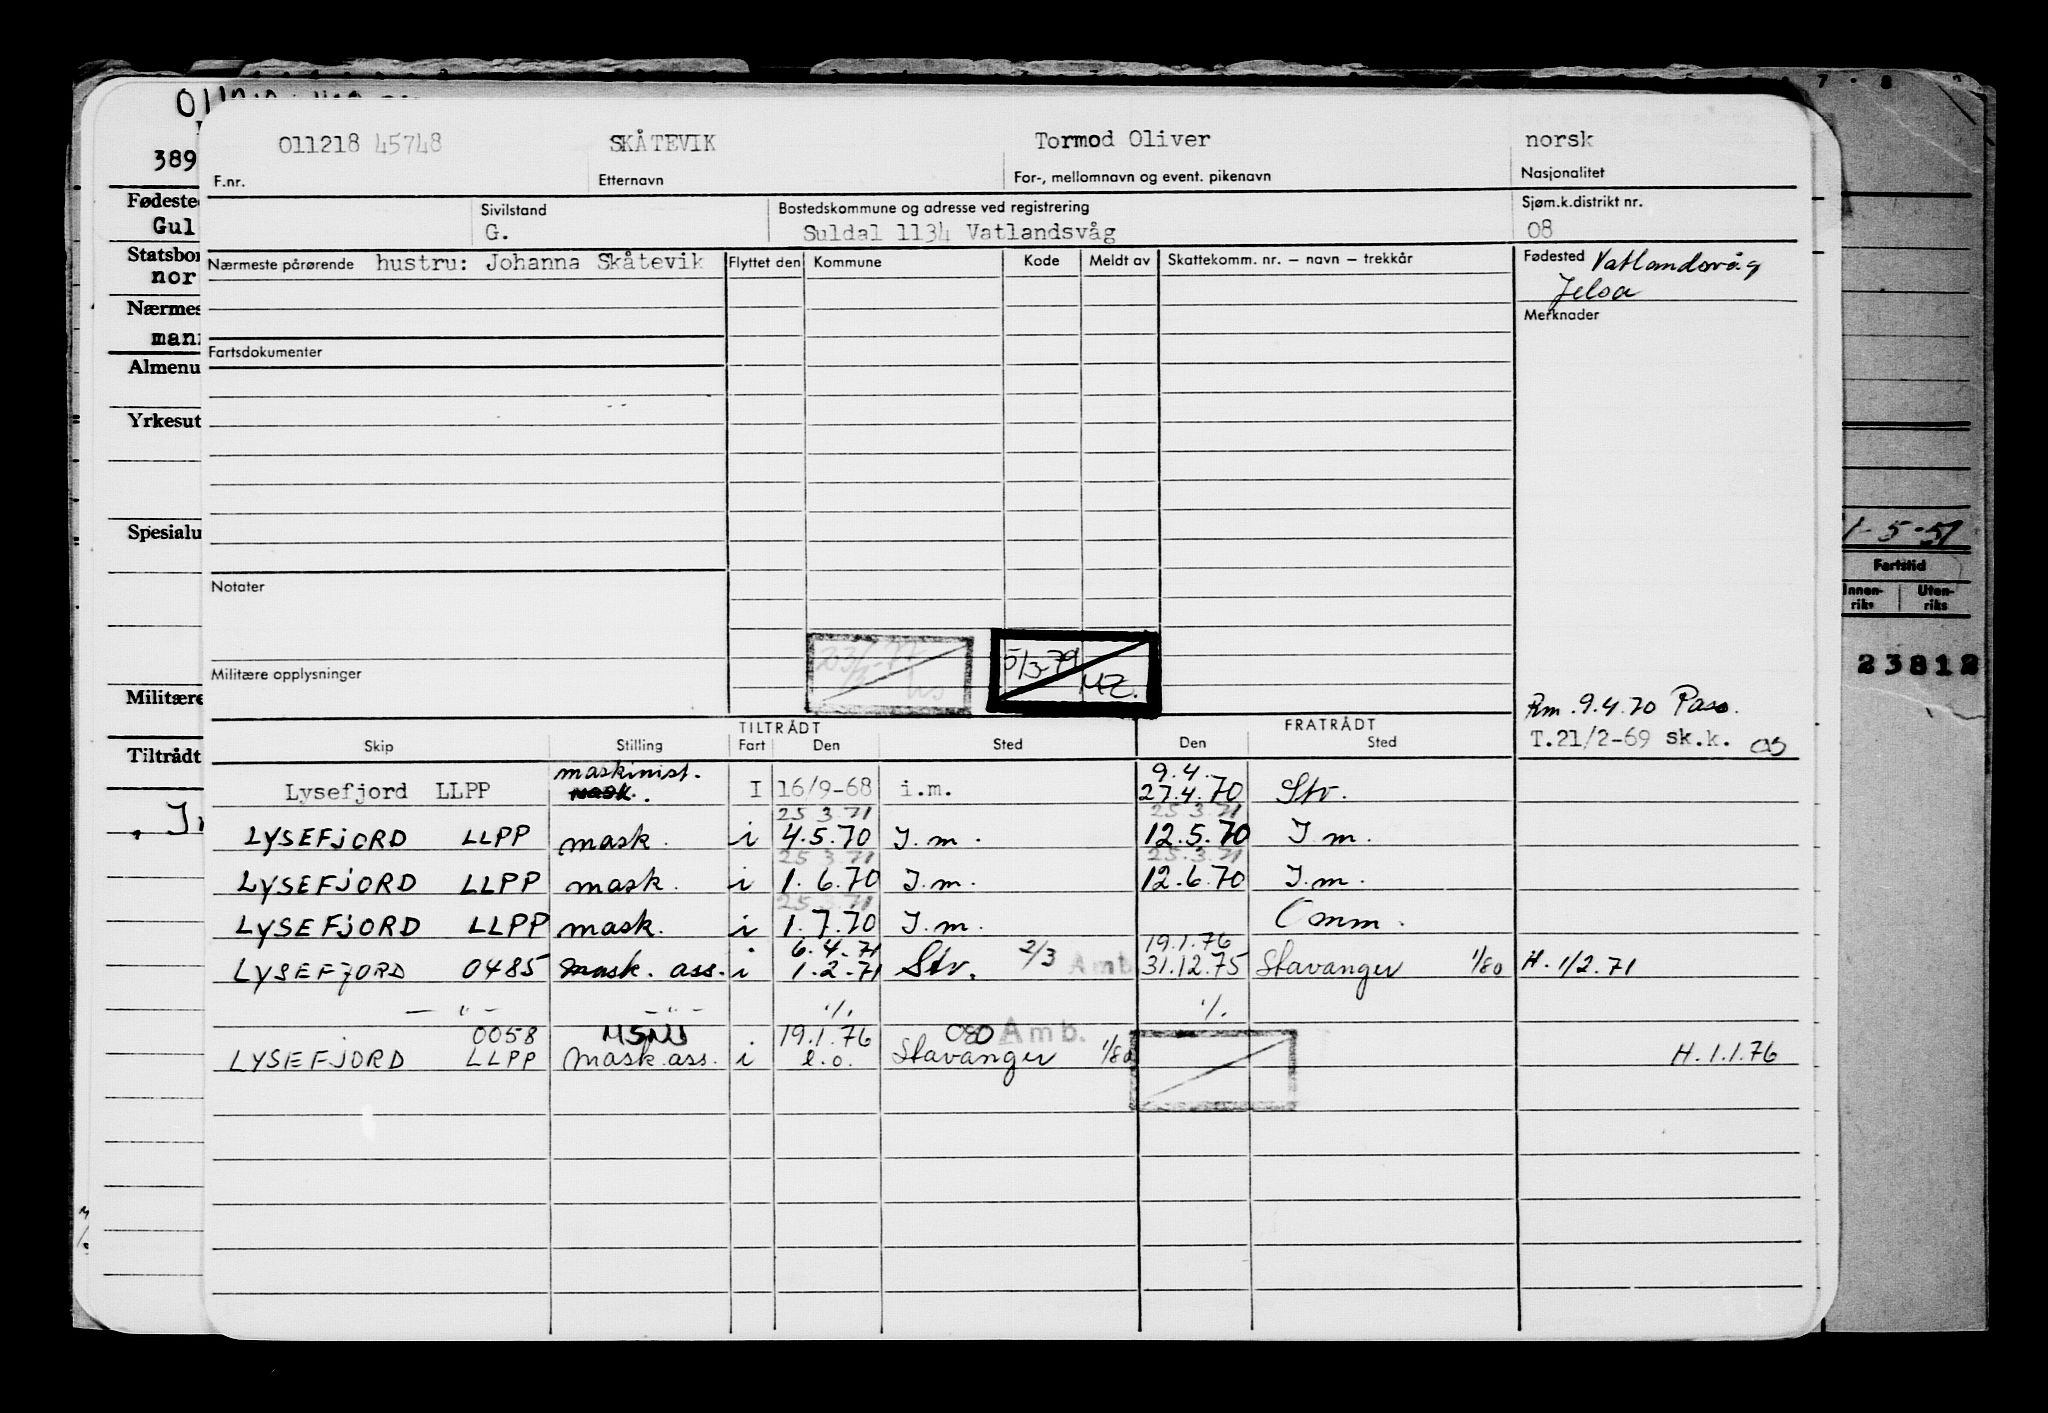 011218 45748 SKÅTEVIK Tormod Oliver norsk
F.nr. Etternavn For-, mellomnavn og event. pikenavn Nasjonalitet
Sivilstand Bostedskommune og adresse ved registrering Sjøm.k.distrikt nr.
G. Suldal 1134 Vatlandsvåg 08
Nærmeste pårørende hustru: Johanna Skåtevik Flyttet den Kommune Kode Meldt av Skattekomm. nr. — navn — trekkår Fødested Vatlandsvåg
Jelsa
Merknader
Fartsdokumenter
Notater
Militære opplysninger
5/3-79
Rm. 9.4.70 Pass.
T.21/2-69 sk.k.
TILTRÅDT FRATRÅDT
Skip Stilling Fart Den Sted Den Sted
maskinist. 9.4.
Lysefjord LLPP mask. I 16/9-68 i.m. 27.4.70 Stv.
25.3.71 25.3.71
LYSEFJORD LLPP mask. i 4.5.70 I.m. 12.5.70 I.m.
25.3.71 25.3.71
LYSEFJORD LLPP mask. i 1.6.70 I.m. 12.6.70 I.m.
25.3.71
LYSEFJORD LLPP mask. i 1.7.70 I.m. Omm.
6.4.71 19.1.76
LYSEFJORD 0485 mask. ass. i 1.2.71 Stv. 2/3 Amb. 31.12.75 Stavanger 1/80 H. 1/2.71
— " — — " — ./. ./.
0058 19.1.76 080 Amb.
LYSEFJORD LLPP mask.ass. i l.o. Stavanger 1/80 H.1.1.76
389
Fødested
Gul
Statsbor
nor
Nærmes
man
Almenu
Yrkesut
Spesialu
Militære
Tiltrådt
7 . 8
1-5-51
Fartstid
Innen-riks Uten-riks
23812